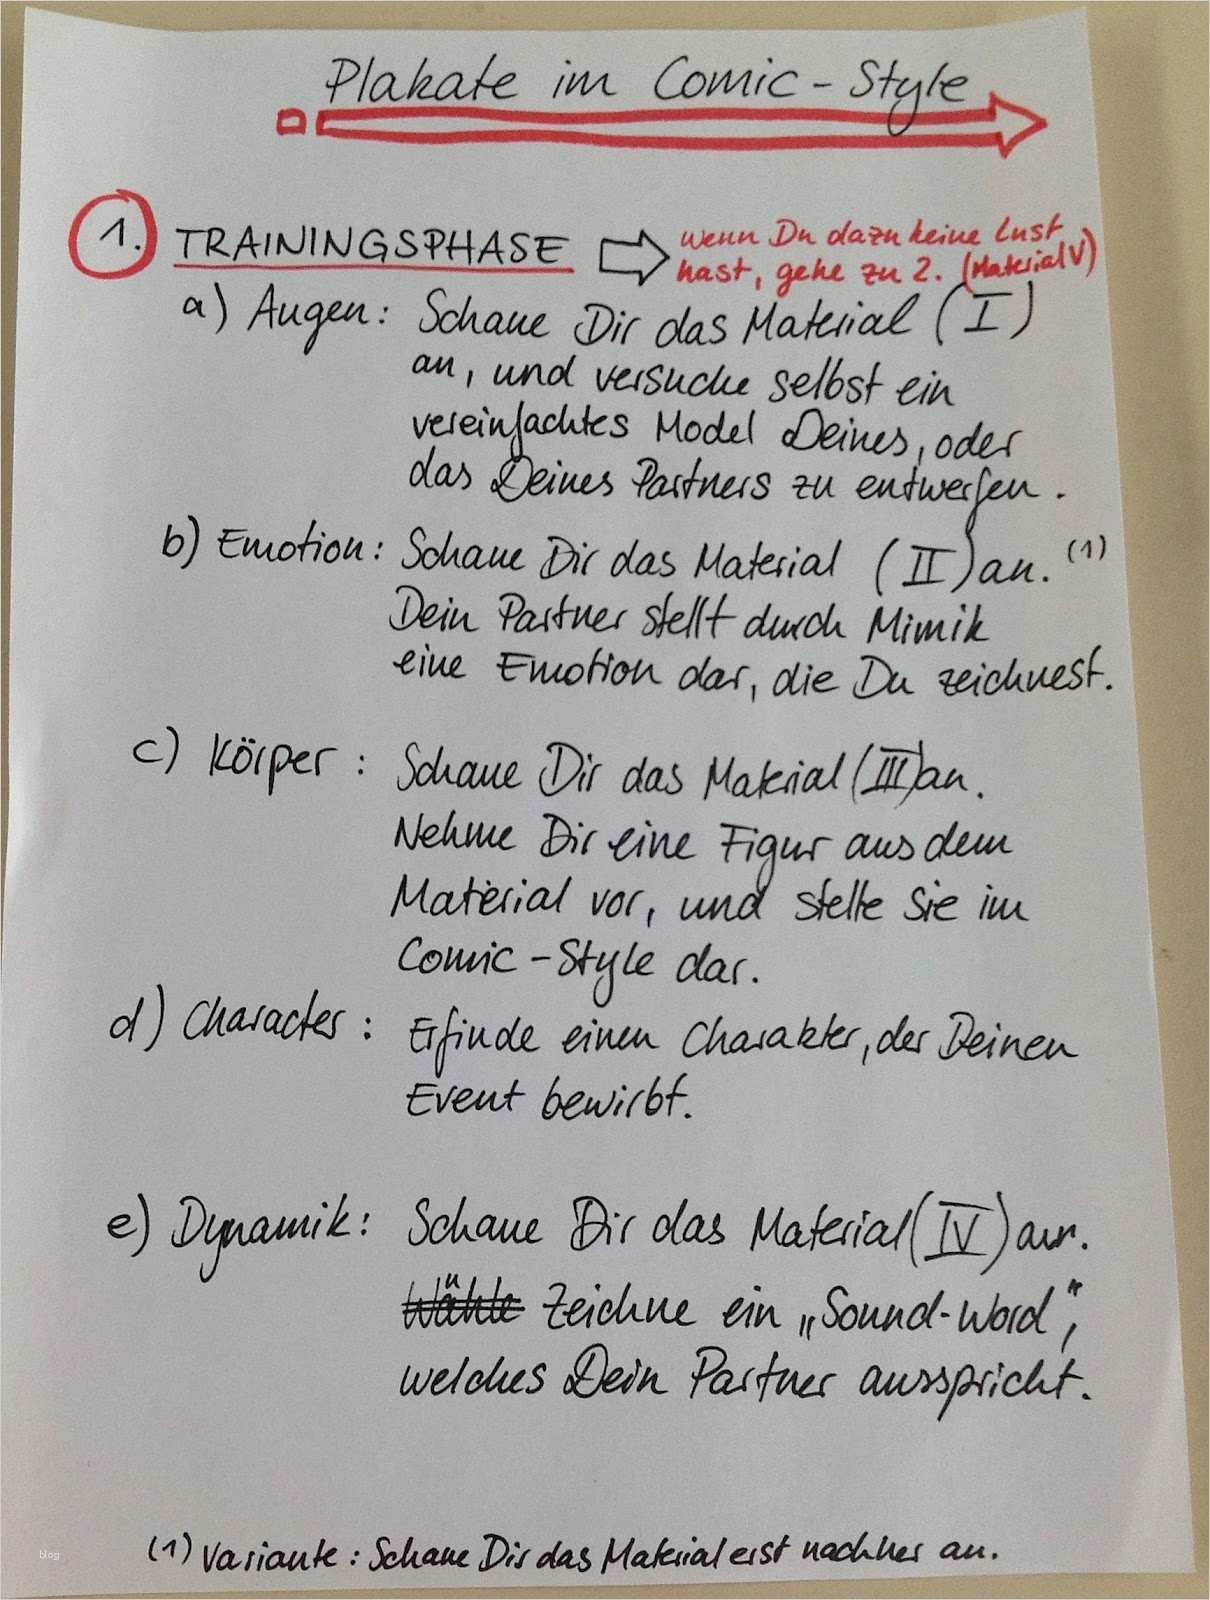 Plakate im Comic-Style
1. TRAININGSPHASE wenn Du dazu keine Lust
hast, gehe zu 2. (Material V)
a) Augen: Schaue Dir das Material (I)
an, und versuche selbst ein
vereinfachtes Model Deines, oder
das Deines Partners zu entwerfen.
b) Emotion: Schaue Dir das Material (II) an. (1)
Dein Partner stellt durch Mimik
eine Emotion dar, die Du zeichnest.
c) Körper: Schaue Dir das Material (III) an.
Nehme Dir eine Figur aus dem
Material vor, und stelle Sie im
Comic-Style dar.
d) Character: Erfinde einen Charakter, der Deinen
Event bewirbt.
e) Dynamik: Schaue Dir das Material (IV) an.
Wähle Zeichne ein „Sound-Word“,
welches Dein Partner ausspricht.
(1) Variante: Schaue Dir das Material erst nachher an.
blog